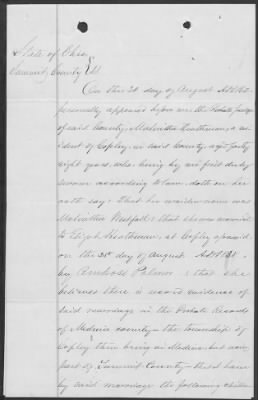 State of Ohio
Summit County } SS
On this 2d day of August AD 1862
personally appeared before me the Probate Judge
of said County Malvitha a res
ident of Copley in said County aged forty
eight years, who being by me first duly
sworn according to law, doth on her
oath say: that her maiden name was
Malvitha Westfall: that she was married
to Elijah at Copley aforesaid,
on the day of August AD
by Ambrose Palmer: that she
believes there is record evidence of
said marriage in the Probate Records
of Medina county - the township of
Copley then being in Medina but now
part of Summit County - that I have
by said marriage the following children